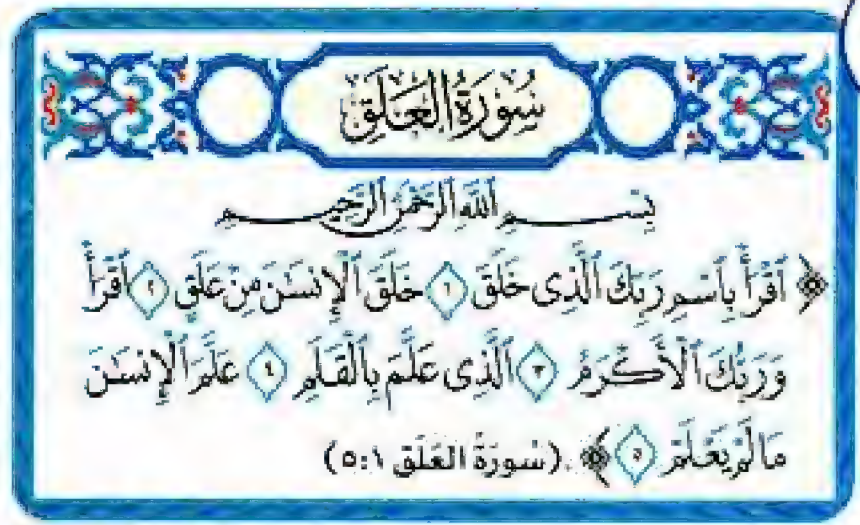 سُورَةُ الْعَلَقِ
بِسْمِ ٱللَّهِ ٱلرَّحْمَٰنِ ٱلرَّحِيمِ
﴿ ٱقْرَأْ بِٱسْمِ رَبِّكَ ٱلَّذِى خَلَقَ ١ خَلَقَ ٱلْإِنسَٰنَ مِنْ عَلَقٍ ٢ ٱقْرَأْ
وَرَبُّكَ ٱلْأَكْرَمُ ٣ ٱلَّذِى عَلَّمَ بِٱلْقَلَمِ ٤ عَلَّمَ ٱلْإِنسَٰنَ
مَا لَمْ يَعْلَمْ ٥ ﴾ . (سُورَةُ العَلَقِ ١:٥)